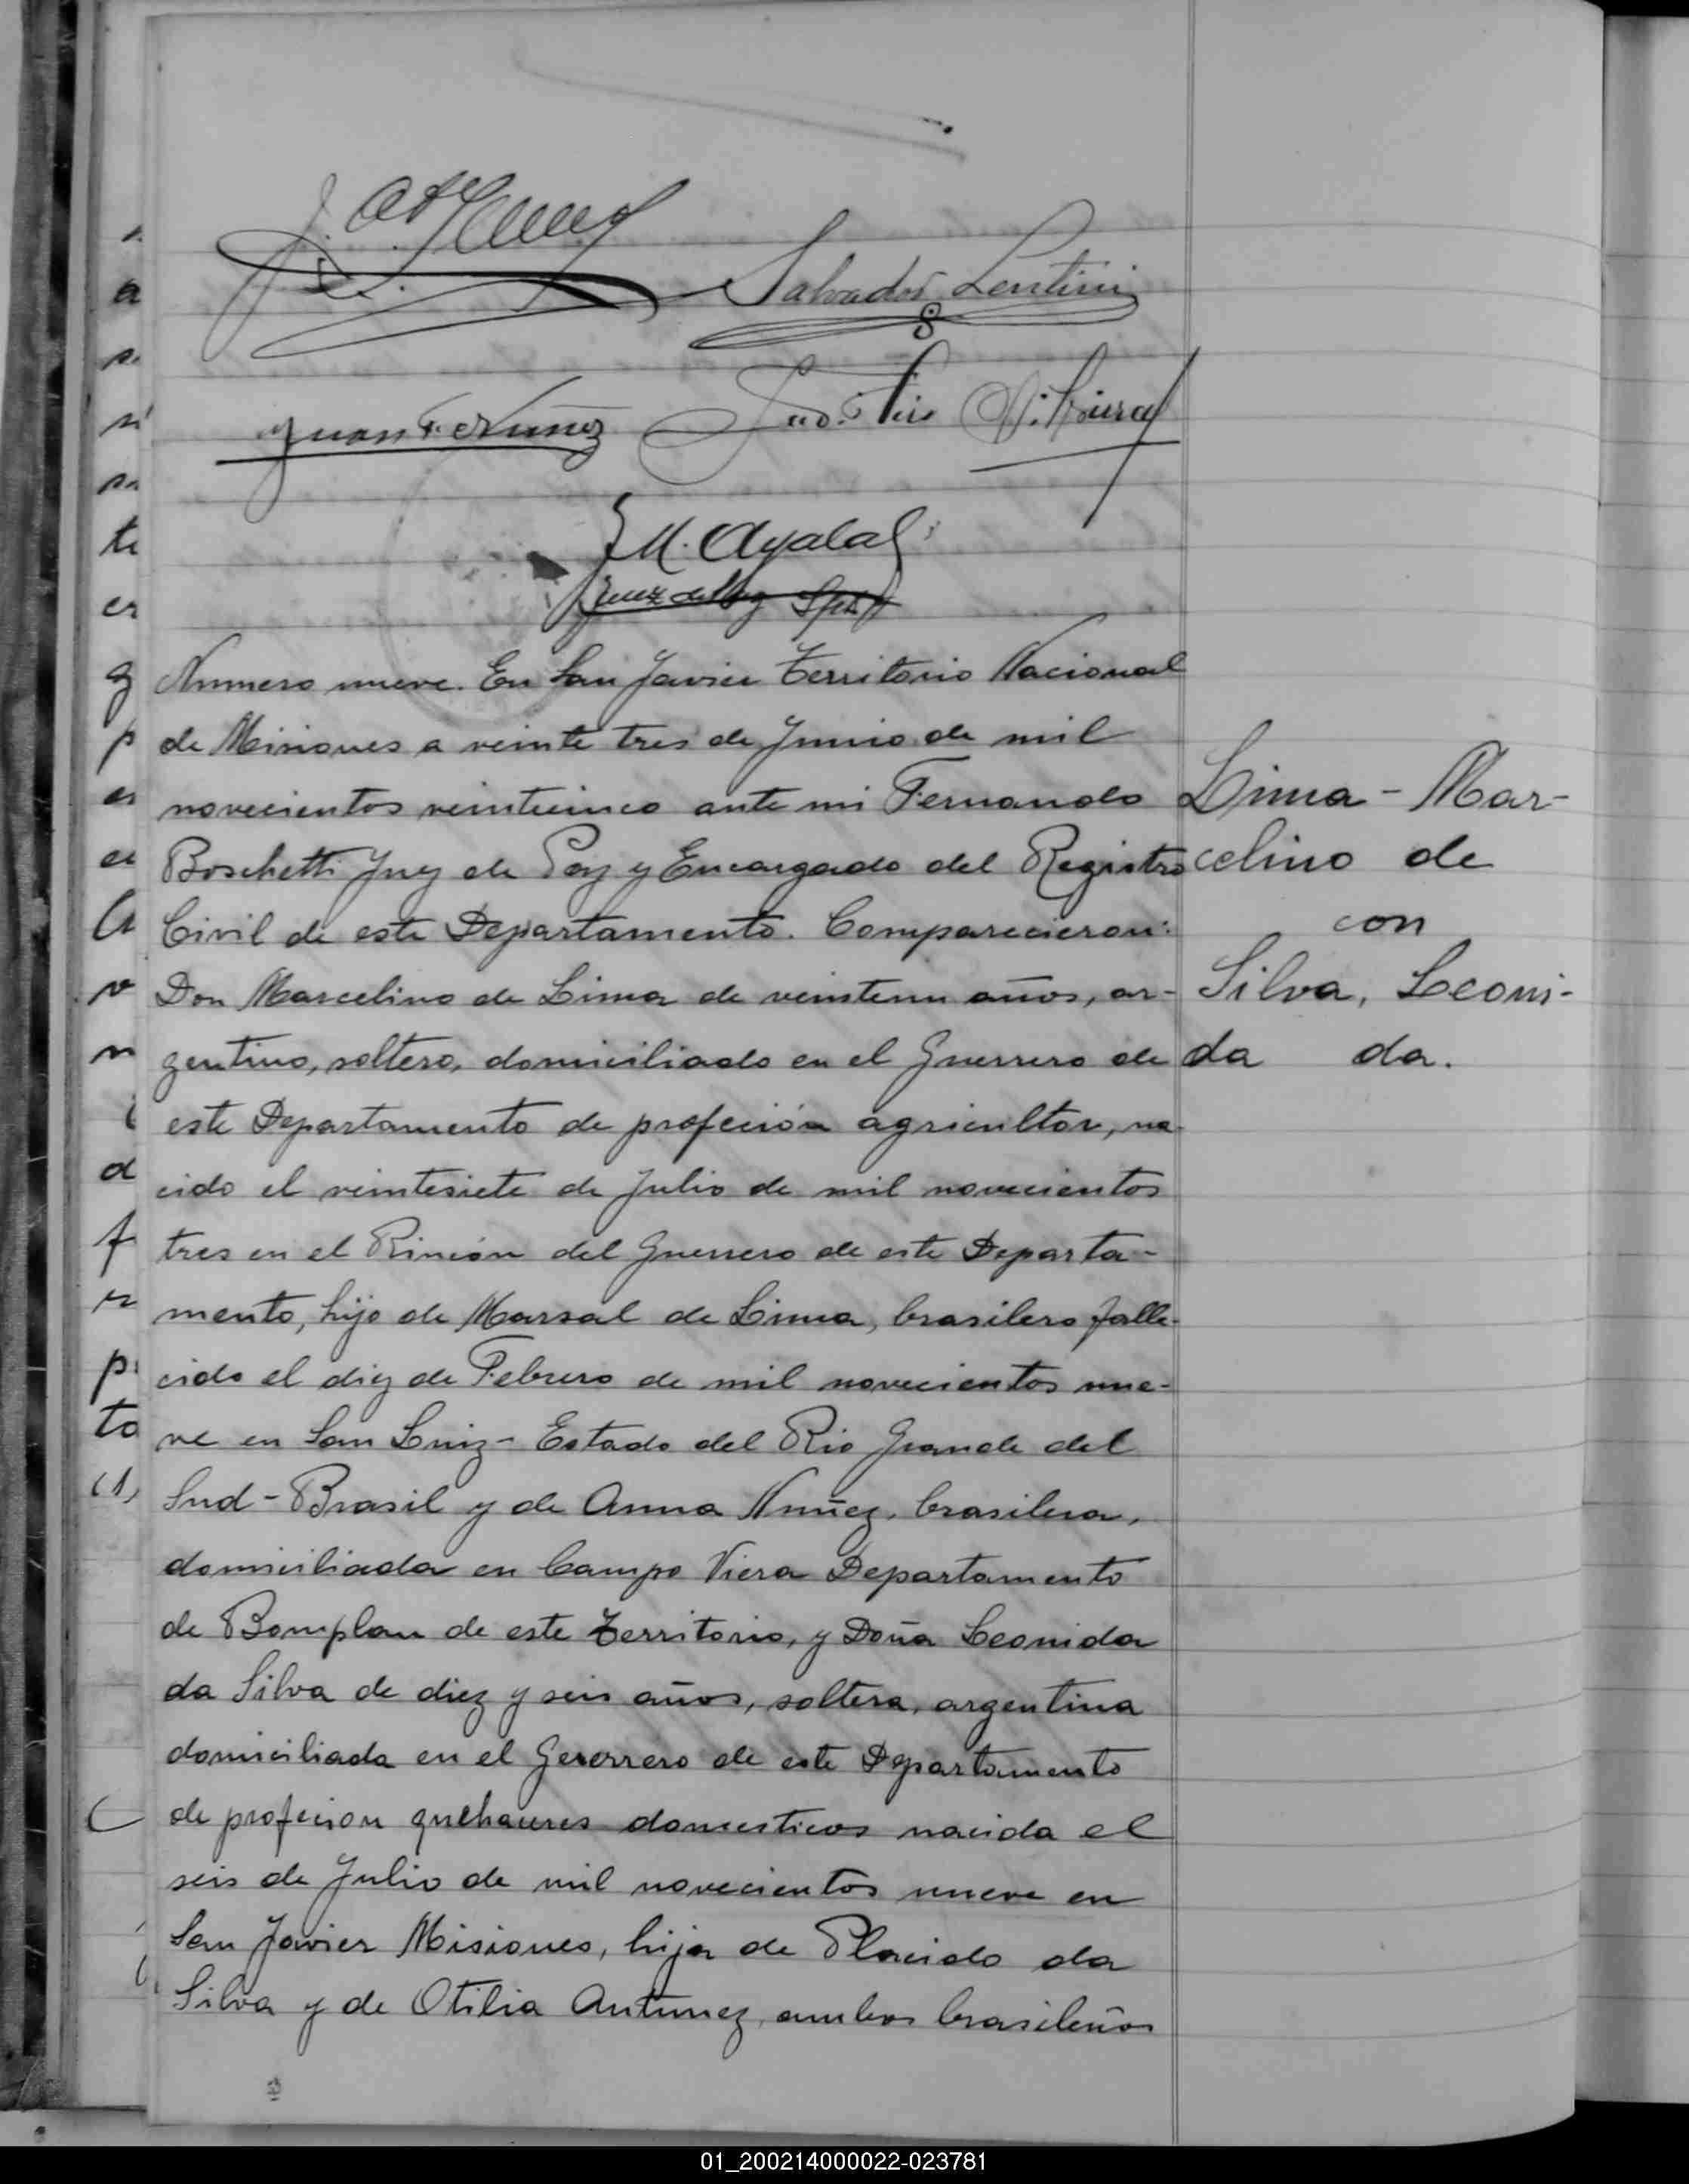 Salvador Lentini
Juan F. Nuñez
M. Ayala
Juez de Paz Spte
Numero nueve. En San Javier Territorio Nacional
de Misiones a veinte tres de Junio de mil
novecientos veinticinco ante mi Fernando
Boschetti Juez de Paz y Encargado del Registro
Civil de este Departamento. Comparecieron:
Don Marcelino de Lima de veinteun años, ar-
gentino, soltero, domiciliado en el Guerrero de
este Departamento de profeción agricultor, na-
cido el veintesiete de Julio de mil novecientos
tres en el Rincón del Guerrero de este Departa-
mento, hijo de Marsal de Lima, brasilero falle-
cido el diez de Febrero de mil novecientos nue-
ve en San Luiz - Estado del Rio Grande del
Sud - Brasil y de Anna Nuñez, brasilera,
domiciliada en Campo Viera Departamento
de Bomplan de este Territorio, y Doña Leonida
da Silva de diez y seis años, soltera, argentina
domiciliada en el Gererrero de este Departamento
de profecion quehaceres domesticos nacida el
seis de Julio de mil novecientos nueve en
San Javier Misiones, hija de Placido da
Silva y de Otilia Antunez, ambos brasileños
Lima - Mar-
celino de
con
Silva, Leoni-
da da.
01_200214000022-023781